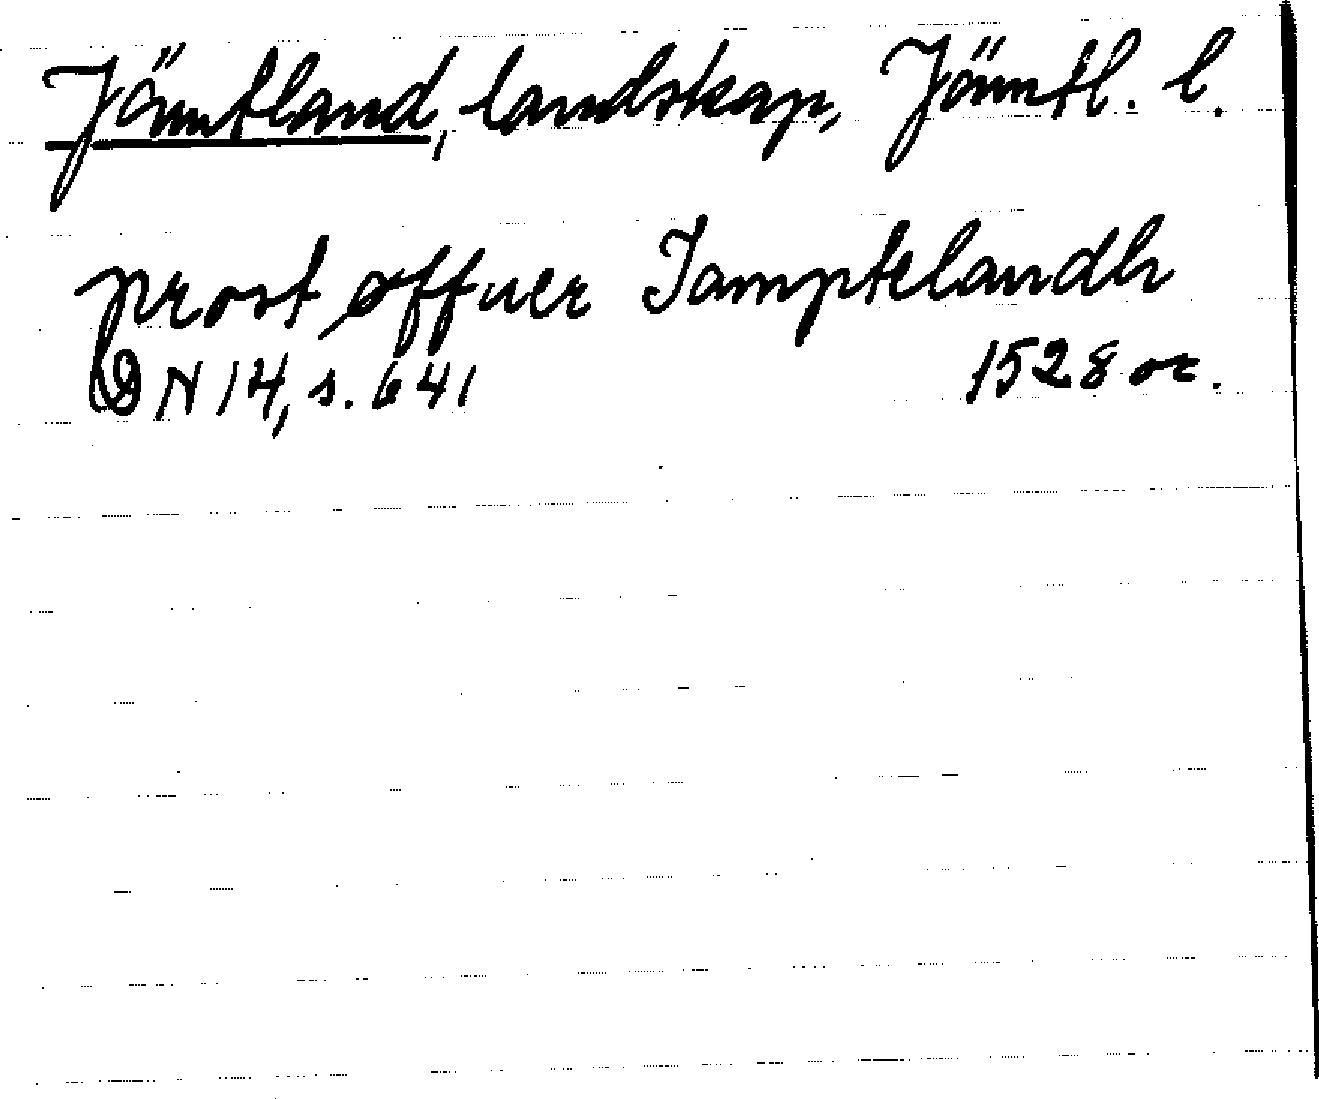 Jämtland, landskap, Jämtl. l.
prost øffuer Jamptelandh
DN 14, s. 641 1528 or.